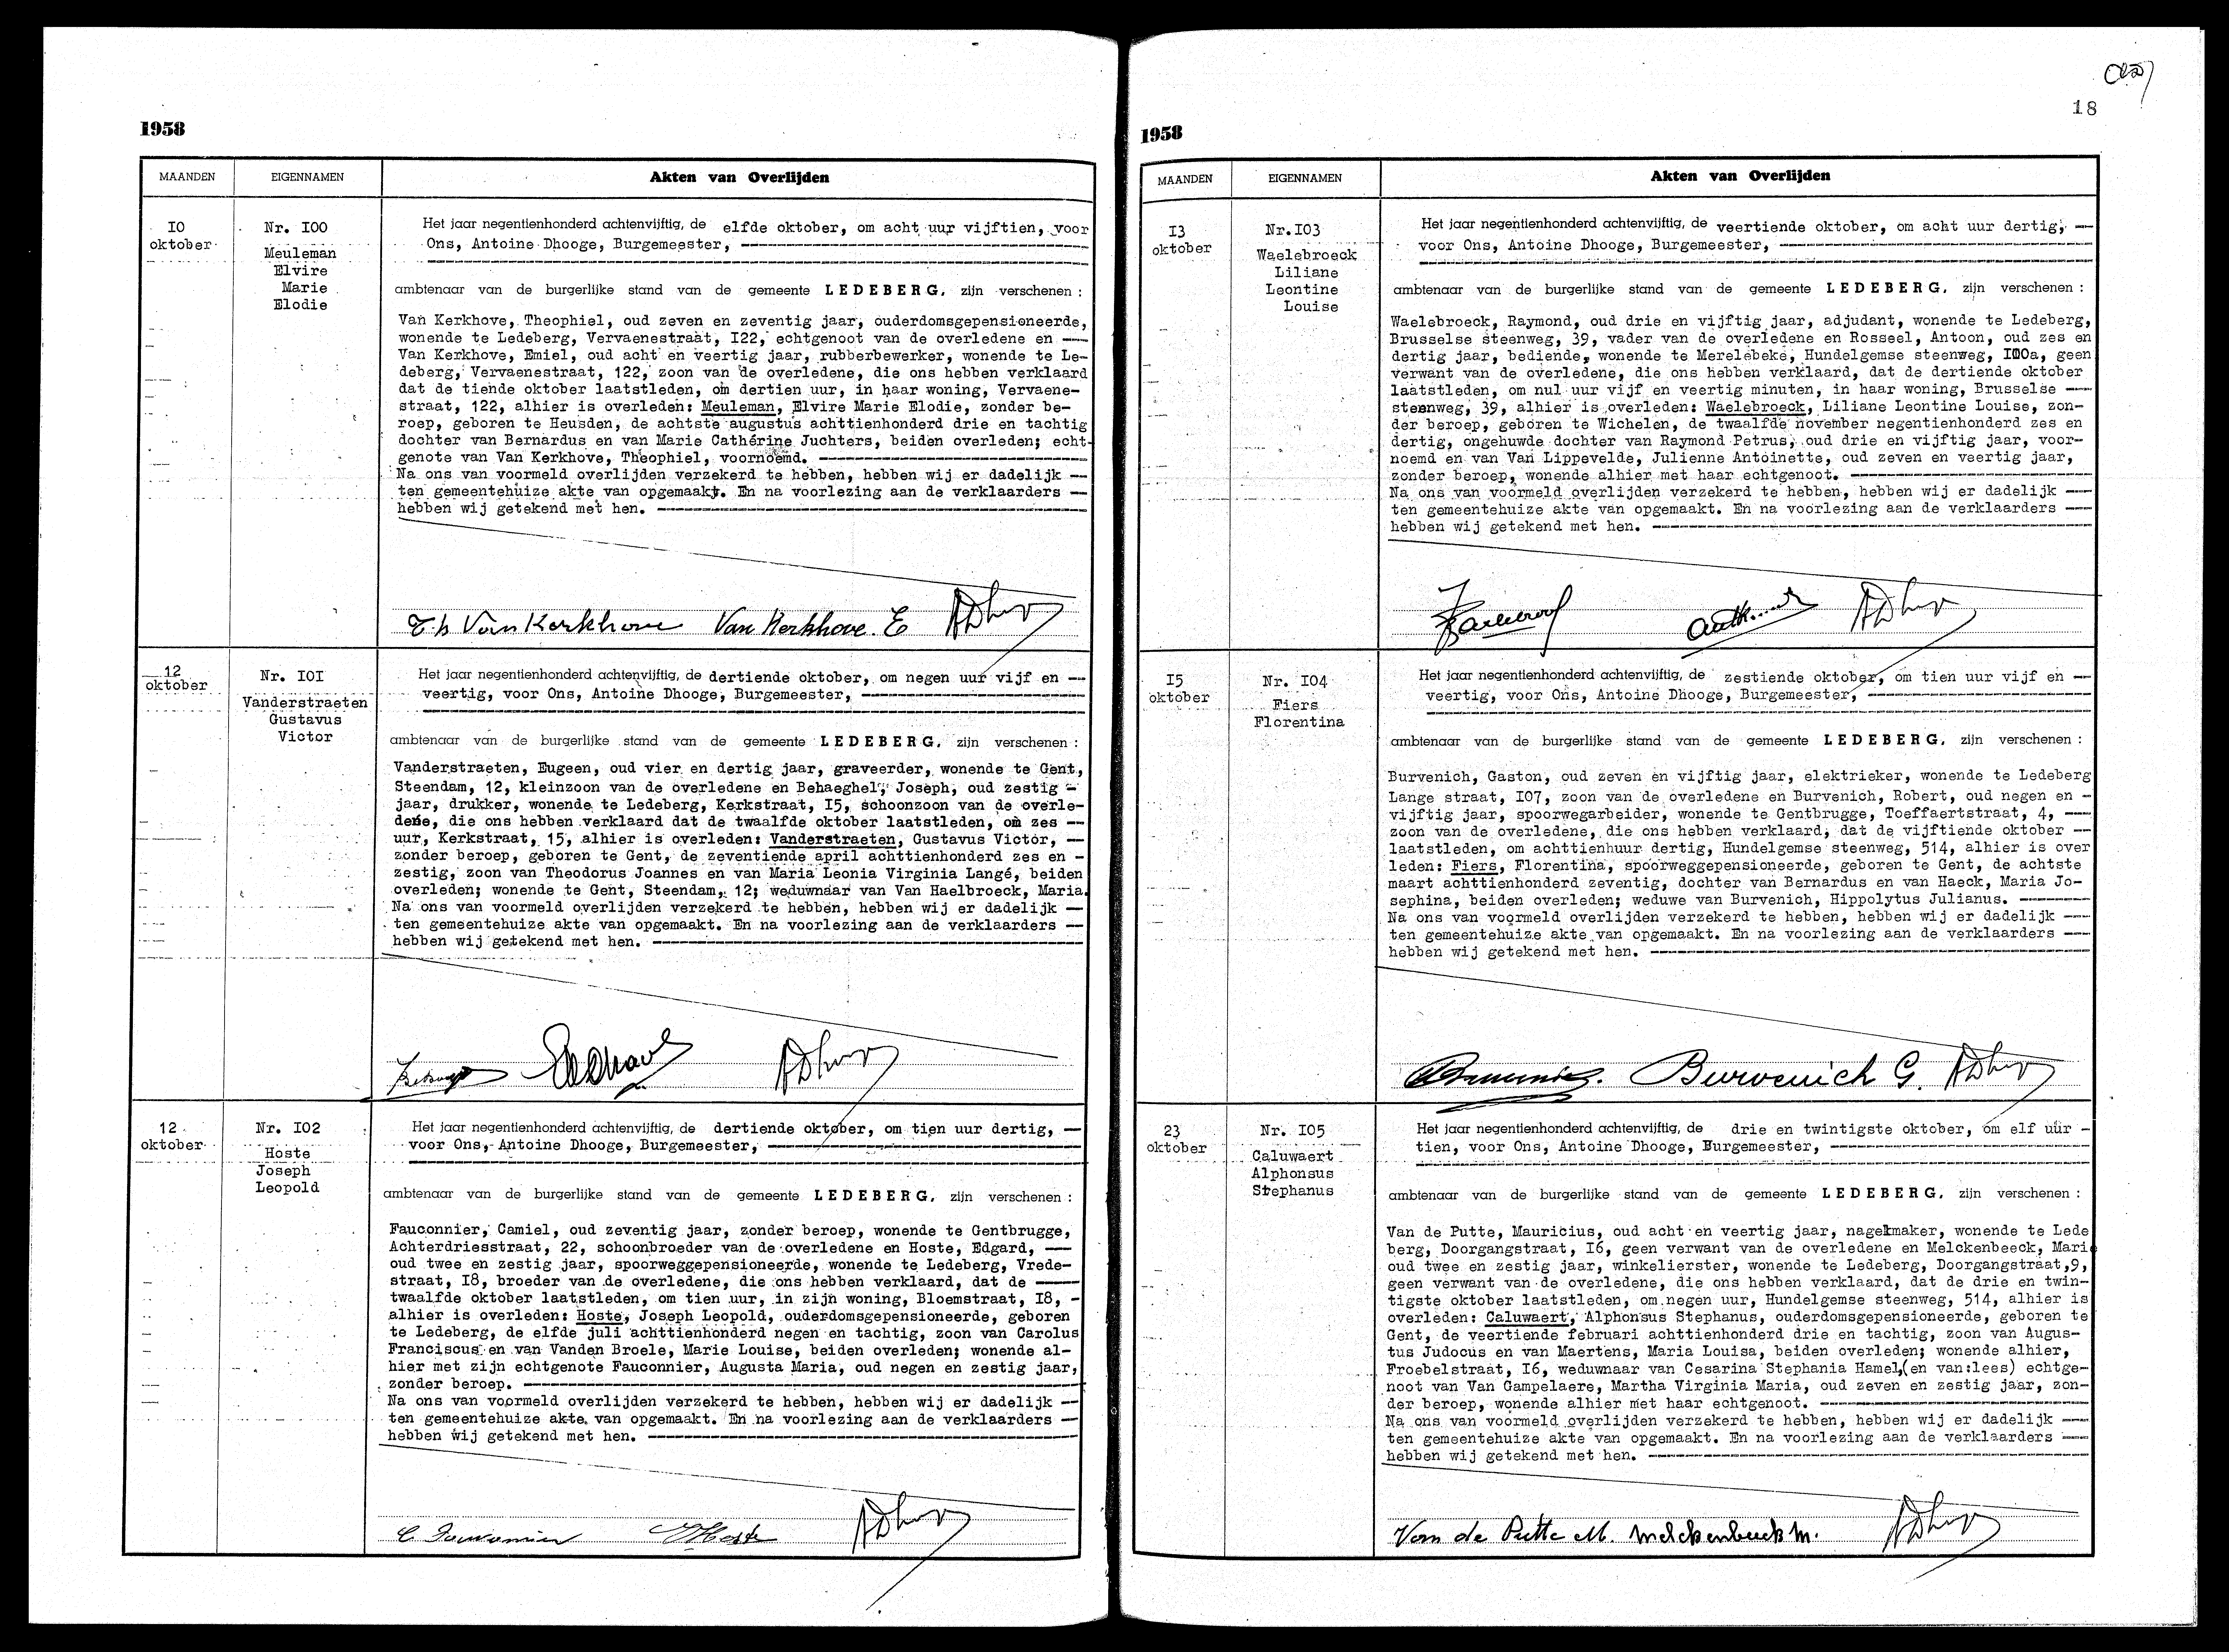 1958
MAANDEN
EIGENNAMEN
Akten van Overlijden
I0
oktober
Nr. I00
Meuleman
Elvire
Marie
Elodie
Het jaar negentienhonderd achtenvijftig, de elfde oktober, om acht uur vijftien, voor
Ons, Antoine Dhooge, Burgemeester,
ambtenaar van de burgerlijke stand van de gemeente LEDEBERG, zijn verschenen :
Van Kerkhove, Theophiel, oud zeven en zeventig jaar, ouderdomsgepensioneerde,
wonende te Ledeberg, Vervaenestraat, I22, echtgenoot van de overledene en —
Van Kerkhove, Emiel, oud acht en veertig jaar, rubberbewerker, wonende te Le-
deberg, Vervaenestraat, 122, zoon van de overledene, die ons hebben verklaard
dat de tiende oktober laatstleden, om dertien uur, in haar woning, Vervaene-
straat, 122, alhier is overleden: Meuleman, Elvire Marie Elodie, zonder be-
roep, geboren te Heusden, de achtste augustus achttienhonderd drie en tachtig
dochter van Bernardus en van Marie Cathérine Juchters, beiden overleden; echt-
genote van Van Kerkhove, Theophiel, voornoemd.
Na ons van voormeld overlijden verzekerd te hebben, hebben wij er dadelijk —
ten gemeentehuize akte van opgemaakt. En na voorlezing aan de verklaarders —
hebben wij getekend met hen.
Th Van Kerkhove Van Kerkhove. E ADhooge
12
oktober
Nr. I0I
Vanderstraeten
Gustavus
Victor
Het jaar negentienhonderd achtenvijftig, de dertiende oktober, om negen uur vijf en —
veertig, voor Ons, Antoine Dhooge, Burgemeester,
ambtenaar van de burgerlijke stand van de gemeente LEDEBERG, zijn verschenen :
Vanderstraeten, Eugeen, oud vier en dertig jaar, graveerder, wonende te Gent,
Steendam, 12, kleinzoon van de overledene en Behaeghel, Joseph, oud zestig -
jaar, drukker, wonende te Ledeberg, Kerkstraat, I5, schoonzoon van de overle-
dene, die ons hebben verklaard dat de twaalfde oktober laatstleden, om zes —
uur, Kerkstraat, 15, alhier is overleden: Vanderstraeten, Gustavus Victor, —
zonder beroep, geboren te Gent, de zeventiende april achttienhonderd zes en -
zestig, zoon van Theodorus Joannes en van Maria Leonia Virginia Langé, beiden
overleden; wonende te Gent, Steendam, 12; weduwnaar van Van Haelbroeck, Maria.
Na ons van voormeld overlijden verzekerd te hebben, hebben wij er dadelijk —
ten gemeentehuize akte van opgemaakt. En na voorlezing aan de verklaarders —
hebben wij getekend met hen.
12
oktober
Nr. I02
Hoste
Joseph
Leopold
Het jaar negentienhonderd achtenvijftig, de dertiende oktober, om tien uur dertig, —
voor Ons, Antoine Dhooge, Burgemeester,
ambtenaar van de burgerlijke stand van de gemeente LEDEBERG, zijn verschenen :
Fauconnier, Camiel, oud zeventig jaar, zonder beroep, wonende te Gentbrugge,
Achterdriesstraat, 22, schoonbroeder van de overledene en Hoste, Edgard, —
oud twee en zestig jaar, spoorweggepensioneerde, wonende te Ledeberg, Vrede-
straat, I8, broeder van de overledene, die ons hebben verklaard, dat de —
twaalfde oktober laatstleden, om tien uur, in zijn woning, Bloemstraat, I8, -
alhier is overleden: Hoste, Joseph Leopold, ouderdomsgepensioneerde, geboren
te Ledeberg, de elfde juli achttienhonderd negen en tachtig, zoon van Carolus
Franciscus en van Vanden Broele, Marie Louise, beiden overleden; wonende al-
hier met zijn echtgenote Fauconnier, Augusta Maria, oud negen en zestig jaar,
zonder beroep.
Na ons van voormeld overlijden verzekerd te hebben, hebben wij er dadelijk —
ten gemeentehuize akte van opgemaakt. En na voorlezing aan de verklaarders —
hebben wij getekend met hen.
C Fauconnier Hoste ADhooge
18
1958
MAANDEN
EIGENNAMEN
Akten van Overlijden
I3
oktober
Nr.I03
Waelebroeck
Liliane
Leontine
Louise
Het jaar negentienhonderd achtenvijftig, de veertiende oktober, om acht uur dertig, —
voor Ons, Antoine Dhooge, Burgemeester,
ambtenaar van de burgerlijke stand van de gemeente LEDEBERG, zijn verschenen :
Waelebroeck, Raymond, oud drie en vijftig jaar, adjudant, wonende te Ledeberg,
Brusselse steenweg, 39, vader van de overledene en Rosseel, Antoon, oud zes en
dertig jaar, bediende, wonende te Merelebeke, Hundelgemse steenweg, I00a, geen
verwant van de overledene, die ons hebben verklaard, dat de dertiende oktober
laatstleden, om nul uur vijf en veertig minuten, in haar woning, Brusselse —
steenweg, 39, alhier is overleden: Waelebroeck, Liliane Leontine Louise, zon-
der beroep, geboren te Wichelen, de twaalfde november negentienhonderd zes en
dertig, ongehuwde dochter van Raymond Petrus, oud drie en vijftig jaar, voor-
noemd en van Van Lippevelde, Julienne Antoinette, oud zeven en veertig jaar,
zonder beroep, wonende alhier met haar echtgenoot.
Na ons van voormeld overlijden verzekerd te hebben, hebben wij er dadelijk —
ten gemeentehuize akte van opgemaakt. En na voorlezing aan de verklaarders —
hebben wij getekend met hen.
I5
oktober
Nr. I04
Fiers
Florentina
Het jaar negentienhonderd achtenvijftig, de zestiende oktober, om tien uur vijf en —
veertig, voor Ons, Antoine Dhooge, Burgemeester,
ambtenaar van de burgerlijke stand van de gemeente LEDEBERG, zijn verschenen :
Burvenich, Gaston, oud zeven en vijftig jaar, elektrieker, wonende te Ledeberg
Lange straat, I07, zoon van de overledene en Burvenich, Robert, oud negen en -
vijftig jaar, spoorwegarbeider, wonende te Gentbrugge, Toeffaertstraat, 4, —
zoon van de overledene, die ons hebben verklaard, dat de vijftiende oktober —
laatstleden, om achttienhuur dertig, Hundelgemse steenweg, 514, alhier is over
leden: Fiers, Florentina, spoorweggepensioneerde, geboren te Gent, de achtste
maart achttienhonderd zeventig, dochter van Bernardus en van Haeck, Maria Jo-
sephina, beiden overleden; weduwe van Burvenich, Hippolytus Julianus.
Na ons van voormeld overlijden verzekerd te hebben, hebben wij er dadelijk —
ten gemeentehuize akte van opgemaakt. En na voorlezing aan de verklaarders —
hebben wij getekend met hen.
Burvenich G. ADhooge
23
oktober
Nr. I05
Caluwaert
Alphonsus
Stephanus
Het jaar negentienhonderd achtenvijftig, de drie en twintigste oktober, om elf uur -
tien, voor Ons, Antoine Dhooge, Burgemeester,
ambtenaar van de burgerlijke stand van de gemeente LEDEBERG, zijn verschenen :
Van de Putte, Mauricius, oud acht en veertig jaar, nagelmaker, wonende te Lede
berg, Doorgangstraat, I6, geen verwant van de overledene en Melckenbeeck, Marie
oud twee en zestig jaar, winkelierster, wonende te Ledeberg, Doorgangstraat,9,
geen verwant van de overledene, die ons hebben verklaard, dat de drie en twin-
tigste oktober laatstleden, om negen uur, Hundelgemse steenweg, 514, alhier is
overleden: Caluwaert, Alphonsus Stephanus, ouderdomsgepensioneerde, geboren te
Gent, de veertiende februari achttienhonderd drie en tachtig, zoon van Augus-
tus Judocus en van Maertens, Maria Louisa, beiden overleden; wonende alhier,
Froebelstraat, I6, weduwnaar van Cesarina Stephania Hamel,(en van:lees) echtge-
noot van Van Gampelaere, Martha Virginia Maria, oud zeven en zestig jaar, zon-
der beroep, wonende alhier met haar echtgenoot.
Na ons van voormeld overlijden verzekerd te hebben, hebben wij er dadelijk —
ten gemeentehuize akte van opgemaakt. En na voorlezing aan de verklaarders —
hebben wij getekend met hen.
Van de Putte M. Melckenbeeck M. ADhooge